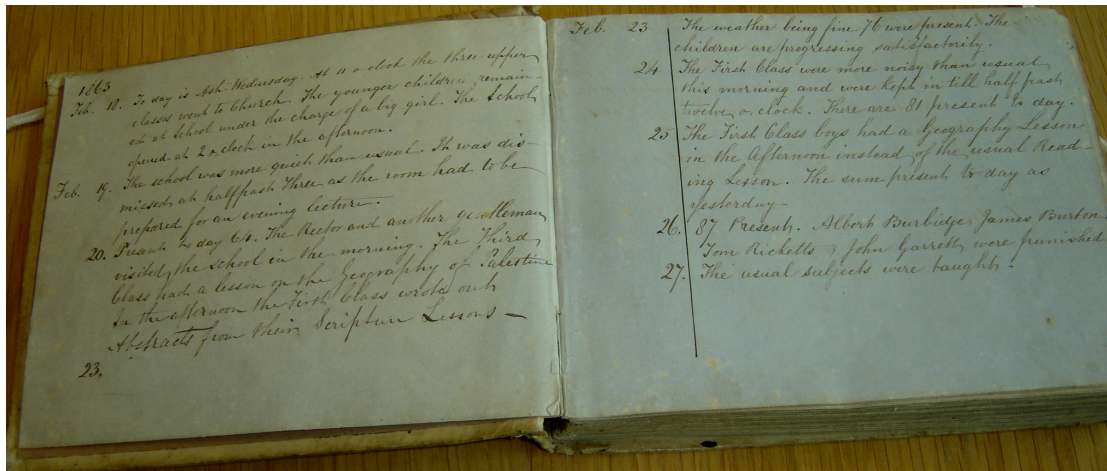 1863
Feb. 18. To day is Ash Wednesday. At 11 o clock the three upper
classes went to Church. The younger children remain-
ed at School under the charge of a big girl. The School
opened at 2 o, clock in the afternoon.
Feb. 19. The school was more quiet than usual. It was dis-
missed at halfpast Three as the room had to be
prepared for an evening lecture.
20. Present to day 64. The Rector and another gentleman
visited the school in the morning. The Third
Class had a lesson on the Geography of Palestine
In the afternoon the First Class wrote out
Abstracts from their Scripture Lessons -
23.
Feb. 23 The weather being fine 76 were present. The
children are progressing satisfactorily.
24 The First Class were more noisy than usual
this morning and were kept in till half past
twelve o, clock. There are 81 present to day.
25 The First Class boys had a Geography Lesson
in the Afternoon instead of the usual Read-
ing Lesson. The sum present to day as
yesterday-
26. 87 Present. Albert Burbidge, James Burton
Tom Ricketts, John Garrett were punished
27. The usual subjects were taught -